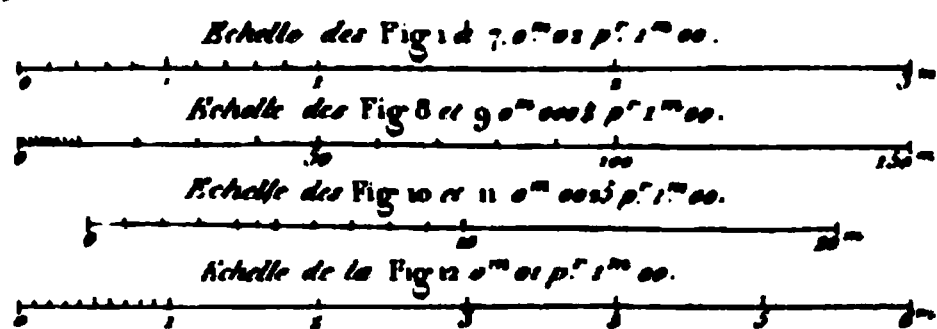 Echelle des Fig 1 à 7. 0ᵐ 02 pʳ. 1ᵐ 00.
0 1 2 3 m
Echelle des Fig 8 et 9 0ᵐ 0005 pʳ 1ᵐ 00.
0 50 100 150 m
Echelle des Fig 10 et 11 0ᵐ 0025 pʳ. 1ᵐ 00.
0 10 20 m
Echelle de la Fig 12 0ᵐ 01 pʳ. 1ᵐ 00.
0 1 2 3 5 6 m